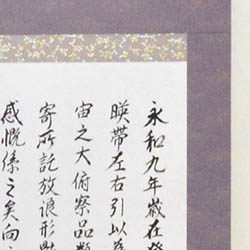 永和九年歲在癸
暎帶左右引以為
宙之大俯察品類
寄所託放浪形
感慨係之矣向之